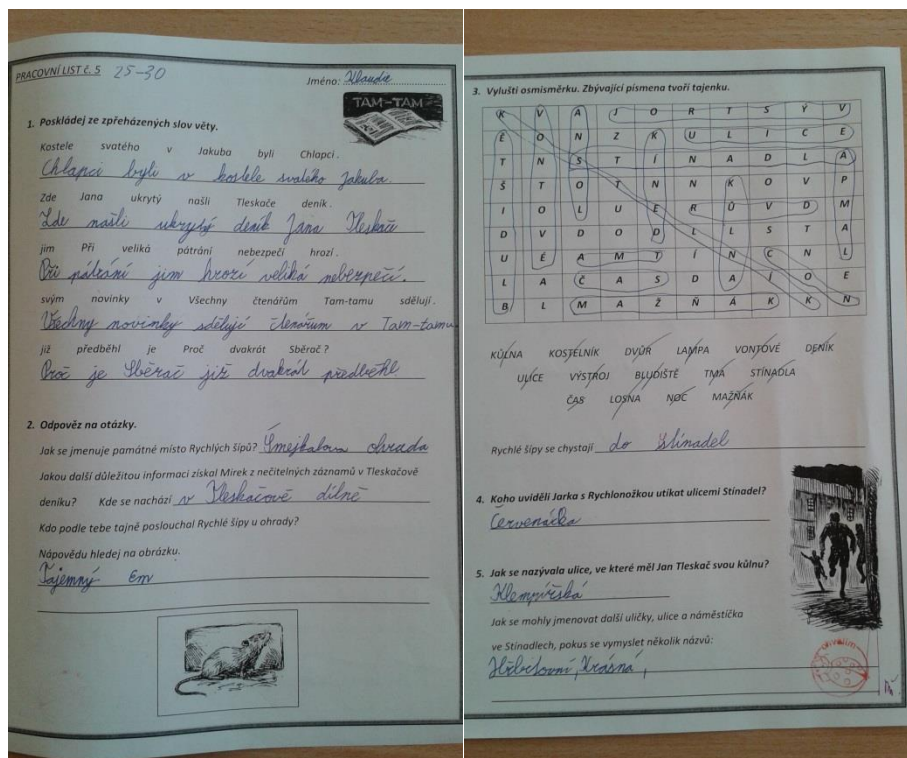 PRACOVNÍ LIST č. 5 25-30
Jméno: Klaudie
TAM-TAM
1. Poskládej ze zpřeházených slov věty.
Kostele svatého v Jakuba byli Chlapci.
Chlapci byli v kostele svatého Jakuba.
Zde Jana ukrytý našli Tleskače deník.
Zde našli ukrytý deník Jana Tleskače
jim Při veliká pátrání nebezpečí hrozí.
Při pátrání jim hrozí veliká nebezpečí.
svým novinky v Všechny čtenářům Tam-tamu sdělují.
Všechny novinky sdělují čtenářum v Tam-tamu
již předběhl je Proč dvakrát Sběrač?
Proč je Sběrač již dvakrát předběhl.
2. Odpověz na otázky.
Jak se jmenuje památné místo Rychlých šípů? Smejkalova ohrada
Jakou další důležitou informaci získal Mirek z nečitelných záznamů v Tleskačově
deníku? Kde se nachází v Tleskačově dílně
Kdo podle tebe tajně poslouchal Rychlé šípy u ohrady?
Nápovědu hledej na obrázku.
Tajemný Em
3. Vylušti osmisměrku. Zbývající písmena tvoří tajenku.
K V A J O R T S Ý V
É O N Z K U L I C E
T N S T Í N A D L A
Š T O T N N K O V P
I O L U E R Ů V D M
D V D O D L L S T A
U É A M T Í N C N L
L A Č A S D A Í O E
B L M A Ž Ň Á K K N
KŮLNA KOSTELNÍK DVŮR LAMPA VONTOVÉ DENÍK
ULICE VÝSTROJ BLUDIŠTĚ TMA STÍNADLA
ČAS LOSNA NOC MAŽŇÁK
Rychlé šípy se chystají do Stínadel
4. Koho uviděli Jarka s Rychlonožkou utíkat ulicemi Stínadel?
Červenáčka
5. Jak se nazývala ulice, ve které měl Jan Tleskač svou kůlnu?
Klempířská
Jak se mohly jmenovat další uličky, ulice a náměstíčka
ve Stínadlech, pokus se vymyslet několik názvů:
Hřbitovní, Krásná,